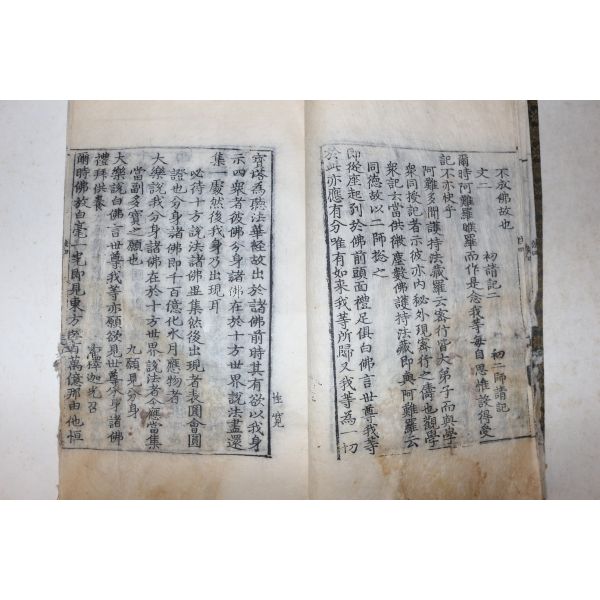 不叙佛故也
文二 初請記二 初二師請記
爾時阿難羅睺羅而作是念我等每自思惟設得受
記不亦快乎
阿難多聞護持法藏羅云密行皆大弟子而與學
衆同授記者示彼亦內秘外現密行之儔也觀學
衆記云當供微塵數佛護持法藏即與阿難羅云
同德故以二師摠之
即從座起到於佛前頭面禮足俱白佛言世尊我等
於此亦應有分唯有如來我等所歸又我等為一切
性寬
寶塔為聽法華經故出於諸佛前時其有欲以我身
示四衆者彼佛分身諸佛在於十方世界說法盡還
集一處然後我身乃出現耳
必待十方說法諸佛畢集然後出現者表圓會圓
證也分身諸佛即千百億化水月應物者
大樂說我分身諸佛在於十方世界說法者今應當集
當副多寶之願也 九願見分身
大樂說白佛言世尊我等亦願欲見世尊分身諸佛
禮拜供養 釋迦光召
爾時佛放白毫一光即見東方五百萬億那由他恒